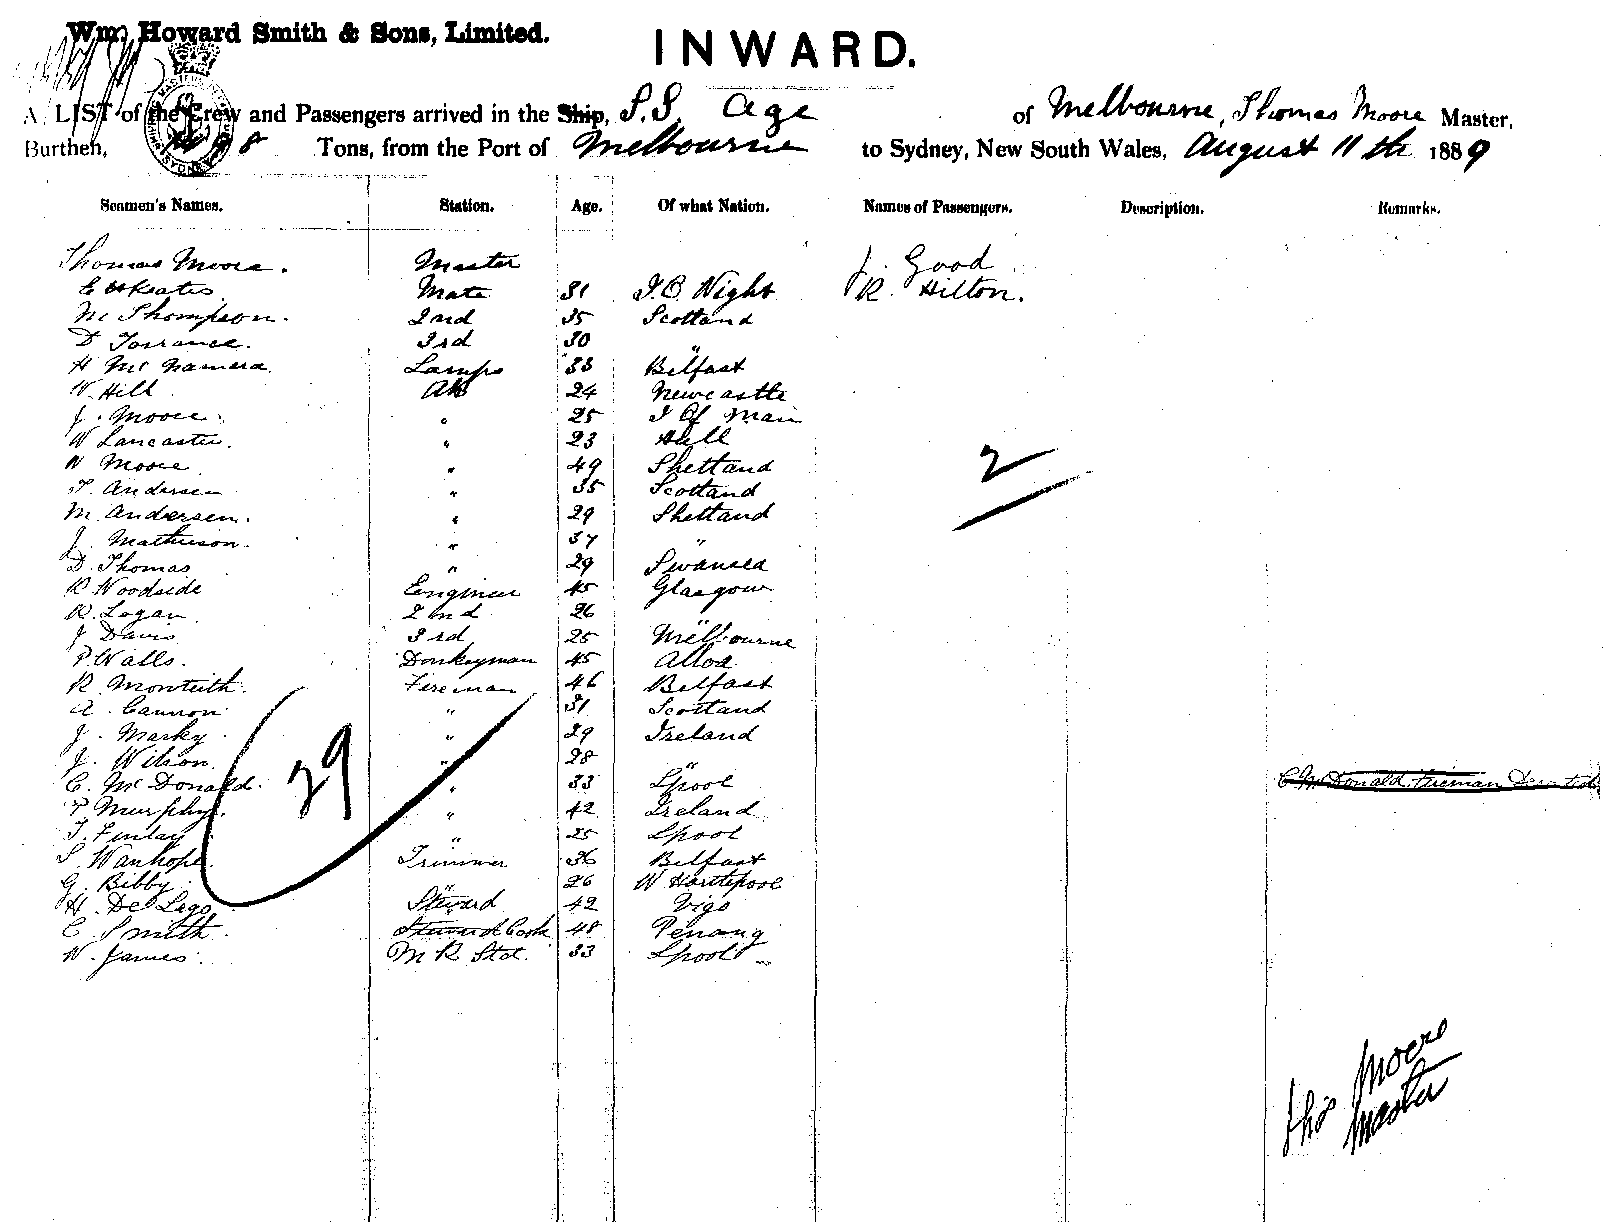 Wm. Howard Smith & Sons, Limited.
INWARD.
A LIST of the Crew and Passengers arrived in the Ship, S.S. Age of Melbourne, Thomas Moore Master,
Burthen, Tons, from the Port of Melbourne to Sydney, New South Wales, August 11th 1889
Seamen's Names. Station. Age. Of what Nation. Names of Passengers. Description. Remarks.
Thomas Moore. Master J. Good
E Keates Mate 31 I.O. Wight R. Hilton.
M Thompson. 2nd 35 Scotland
D Torrance. 3rd 30 "
H McNamera Lamps 33 Belfast
W. Hill AB 24 Newcastle
J. Moore " 25 I Of Man
W Lancaster. " 23 Hull
W Moore " 49 Shetland
T. Andersen " 35 Scotland
M. Andersen. " 29 Shetland
J. Mathieson. " 37 "
D. Thomas " 29 Swansea
R Woodside Engineer 45 Glasgow
R. Logan 2nd 26 "
J Davis 3rd 25 Melbourne
P. Walls. Donkeyman 45 Alloa
R. Monteith. Fireman 46 Belfast
A. Cannon " 31 Scotland
J. Marky " 29 Ireland
J. Wilson. " 28 "
C. McDonald. " 33 Lpool C McDonald Fireman
P Murphy. " 42 Ireland
T. Finlay " 25 Lpool
S. Wanhope. Trimmer 36 Belfast
G. Bibby " 26 W Hartlepool
H. De Lago Steward 42 Vigo
C. Smith Steward Cook 48 Penang
W. James. M R Std. 33 Lpool
2
29
Thos Moore
Master